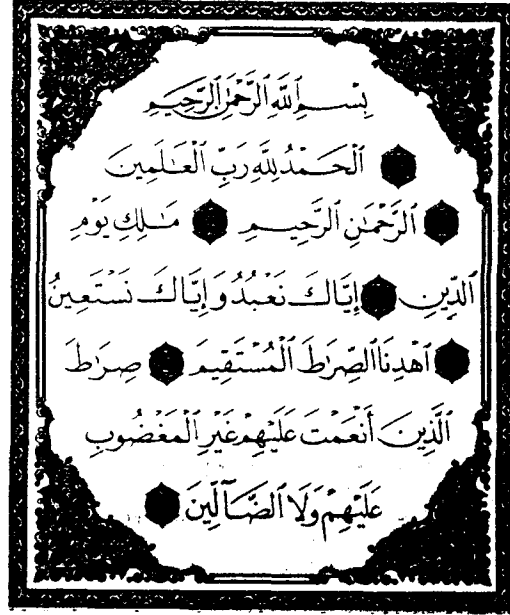 بِسْمِ ٱللَّهِ ٱلرَّحْمَٰنِ ٱلرَّحِيمِ
ٱلْحَمْدُ لِلَّهِ رَبِّ ٱلْعَٰلَمِينَ
ٱلرَّحْمَٰنِ ٱلرَّحِيمِ مَٰلِكِ يَوْمِ
ٱلدِّينِ إِيَّاكَ نَعْبُدُ وَإِيَّاكَ نَسْتَعِينُ
ٱهْدِنَا ٱلصِّرَٰطَ ٱلْمُسْتَقِيمَ صِرَٰطَ
ٱلَّذِينَ أَنْعَمْتَ عَلَيْهِمْ غَيْرِ ٱلْمَغْضُوبِ
عَلَيْهِمْ وَلَا ٱلضَّآلِّينَ